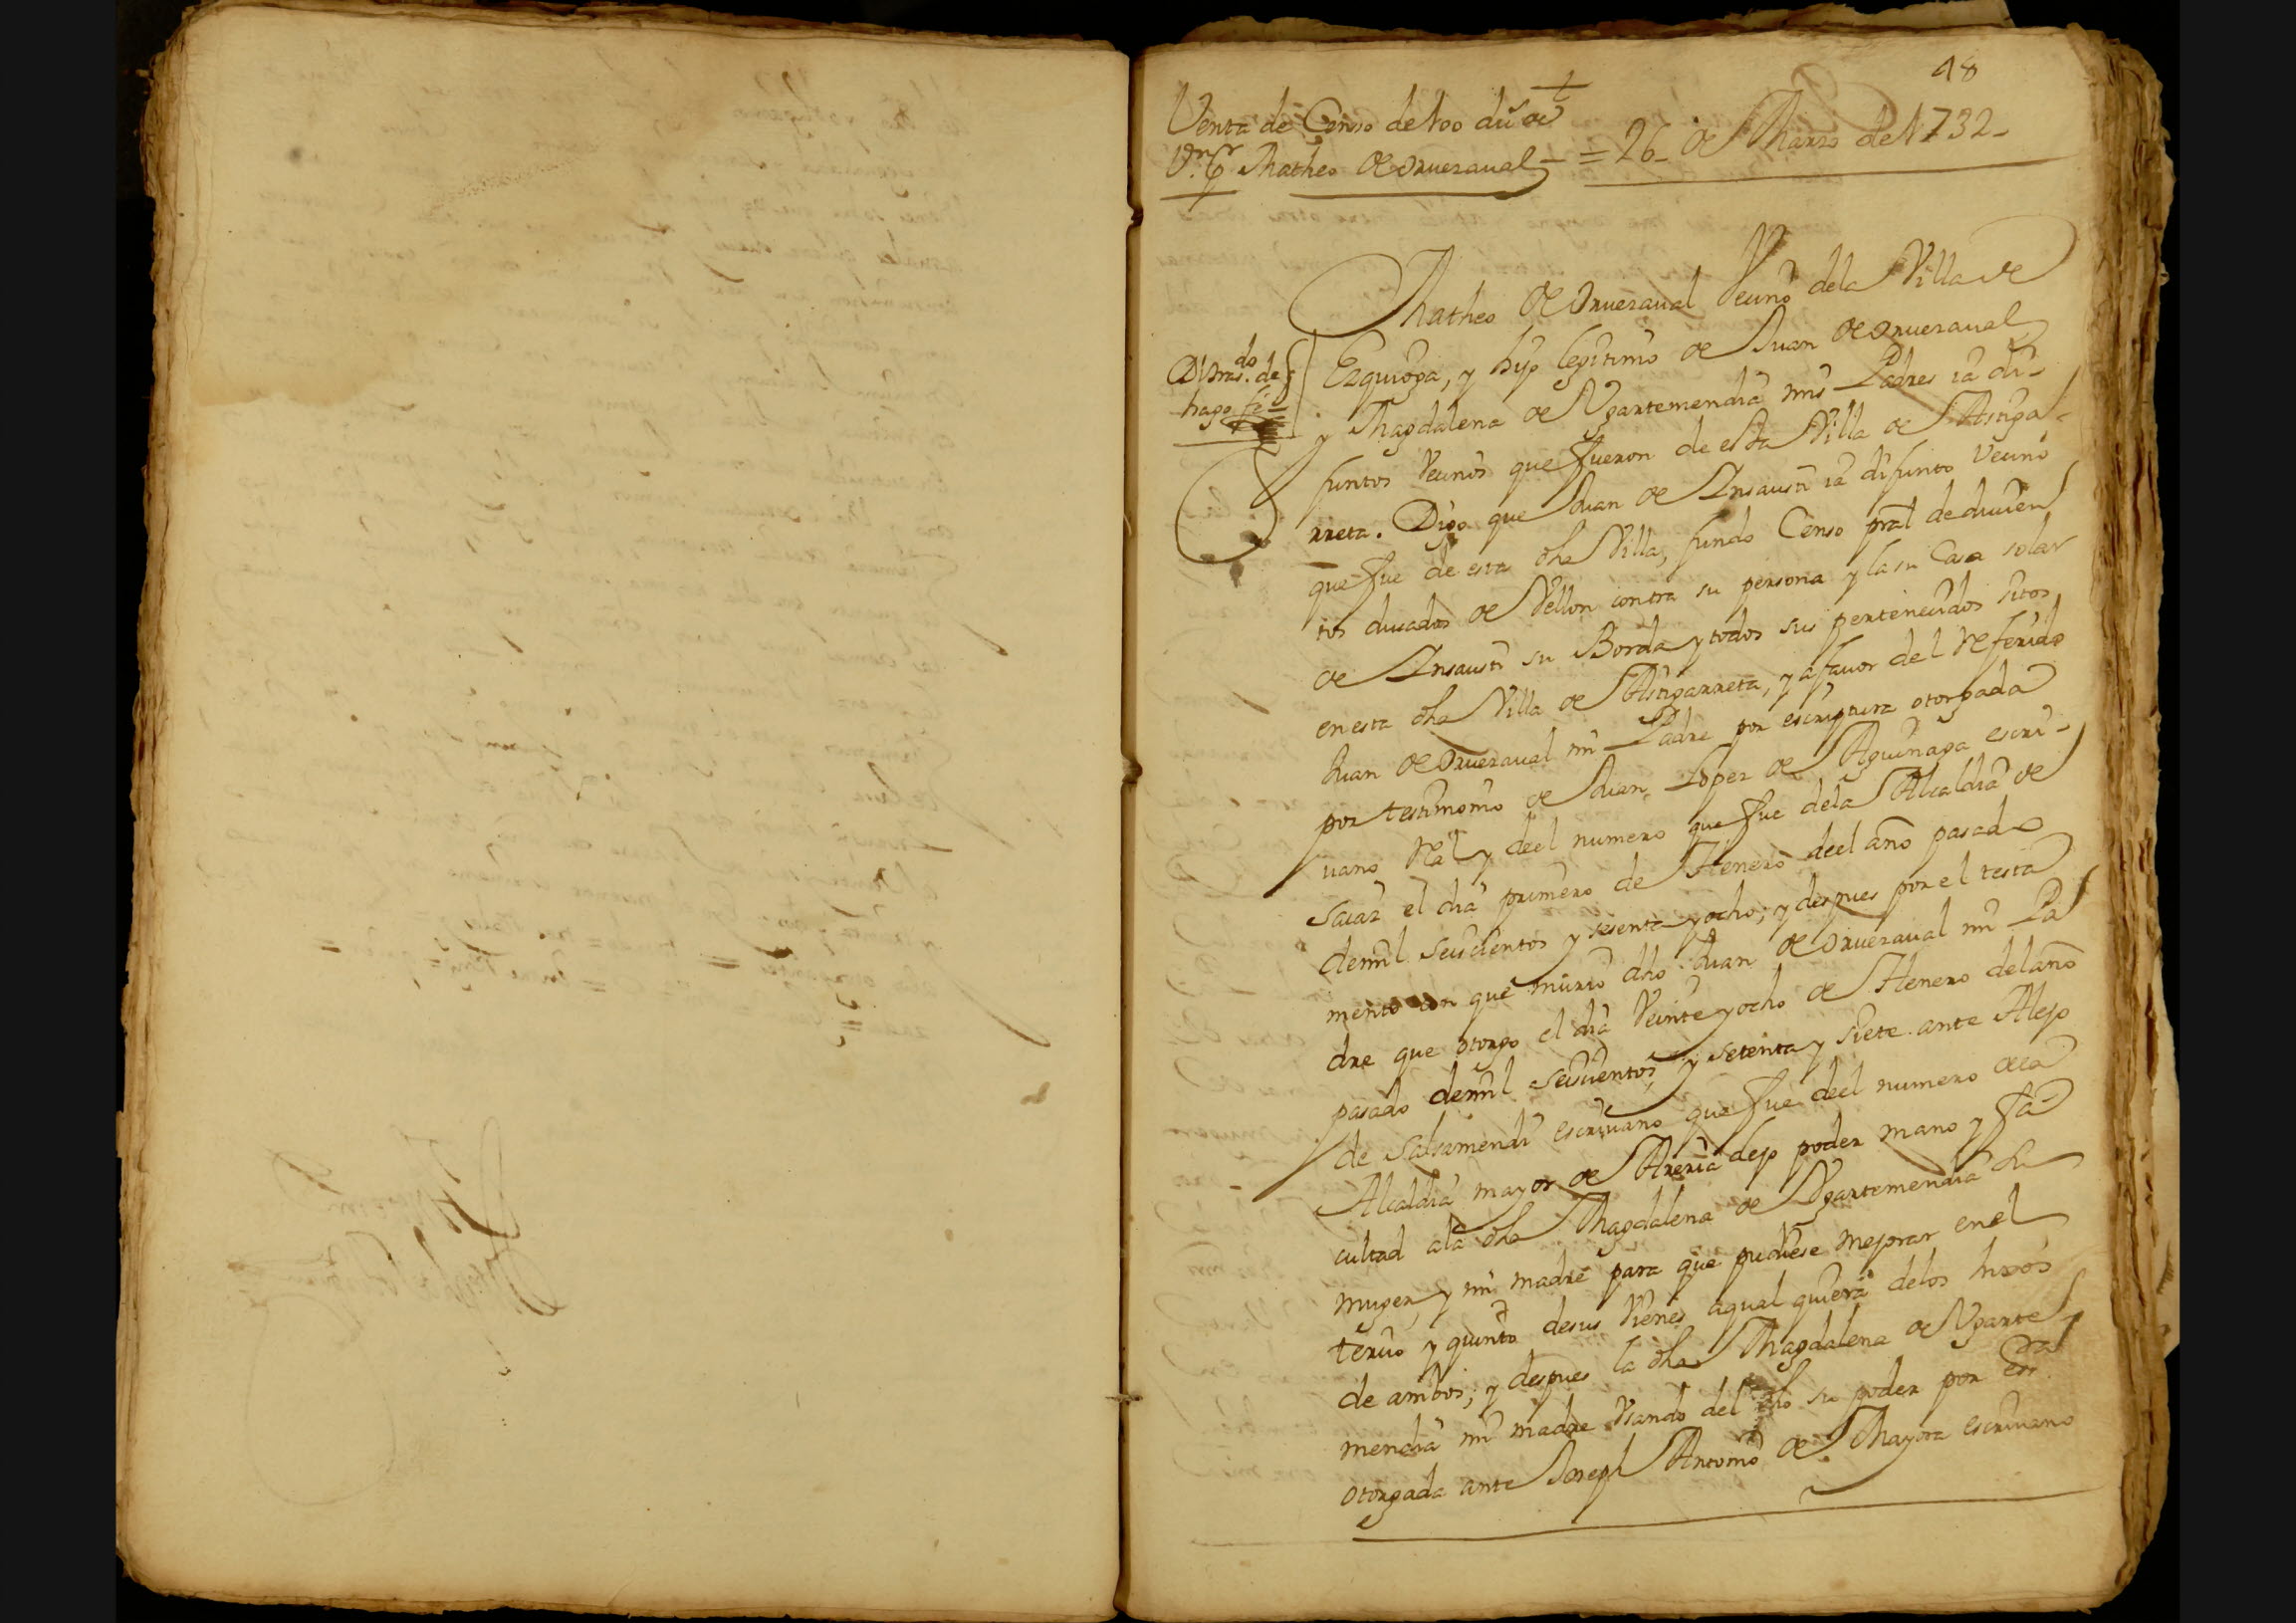 48
Venta de Censo de 100 du.s de
V.on Pr Matheo de Orueraual = 26 de Marzo de 1732
Matheo de Orueraual Vecino dela Villa de
Di tras.do de
hago fe =
Ezquioga, y hijo legitimo de Juan de Orueraual
y Magdalena de Vgartemendia mis Padres ia di-
funtos Vecinos que fueron de esta Villa de Astiga-
rreta. Digo que Juan de Insausti ia difunto Vecino
que fue de esta dha Villa, fundo Censo pral de ducien
tos ducados de Vellon contra su persona y la su Casa solar
de Insausti su Borda y todos sus pertenecidos sitos
en esta dha Villa de Astigarreta, y a fauor del Referido
Juan de Orueraual mi Padre por escriptura otorgada
por testimonio de Juan Lopez de Aguinaga escri-
uano Ral y deel numero que fue dela Alcaldia de
Saiaz el dia primero de Henero deel año pasado
demil seiscientos y sesenta y ocho; y despues por el testa
mento con que murio dho Juan de Orueraual mi Pa
dre que otorgo el dia Veinte y ocho de Henero del año
pasado demil seiscientos y setenta y siete ante Alejo
de Salsamendi escriuano que fue deel numero dela
Alcaldia mayor de Areria dejo poder mano y fa
cultad ala dha Magdalena de Vgartemendia su
muger, y mi madre para que pudiese mejorar en el
tercio y quinto desus Vienes aqual quiera delos hixos
de ambos; y despues la dha Magdalena de Vgarte
mendia mi madre Vsando del dho su poder por essra
otorgada ante Joseph Antonio de Mayora escriuano